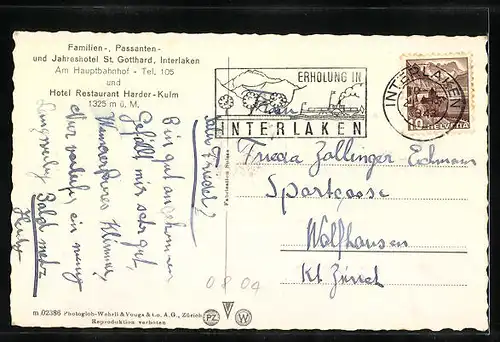 Familien-, Passanten-
und Jahreshotel St. Gotthard, Interlaken
Am Hauptbahnhof - Tel. 105
und
Hotel Restaurant Harder-Kulm
1325 m ü. M.
ERHOLUNG IN
INTERLAKEN
INTERLAKEN
10
HELVETIA
Frieda Zollinger
Sportgasse
Wolfhausen
Kt. Zürich
Bin gut angekommen
Gefällt mir sehr gut,
Wunderbares Klima,
Nur vorläufig ein wenig
langweilig Bald mehr
08 04
m 02386 Photoglob-Wehrli & Vouga & Co. A.G., Zürich
Reproduktion verboten
PZ
W